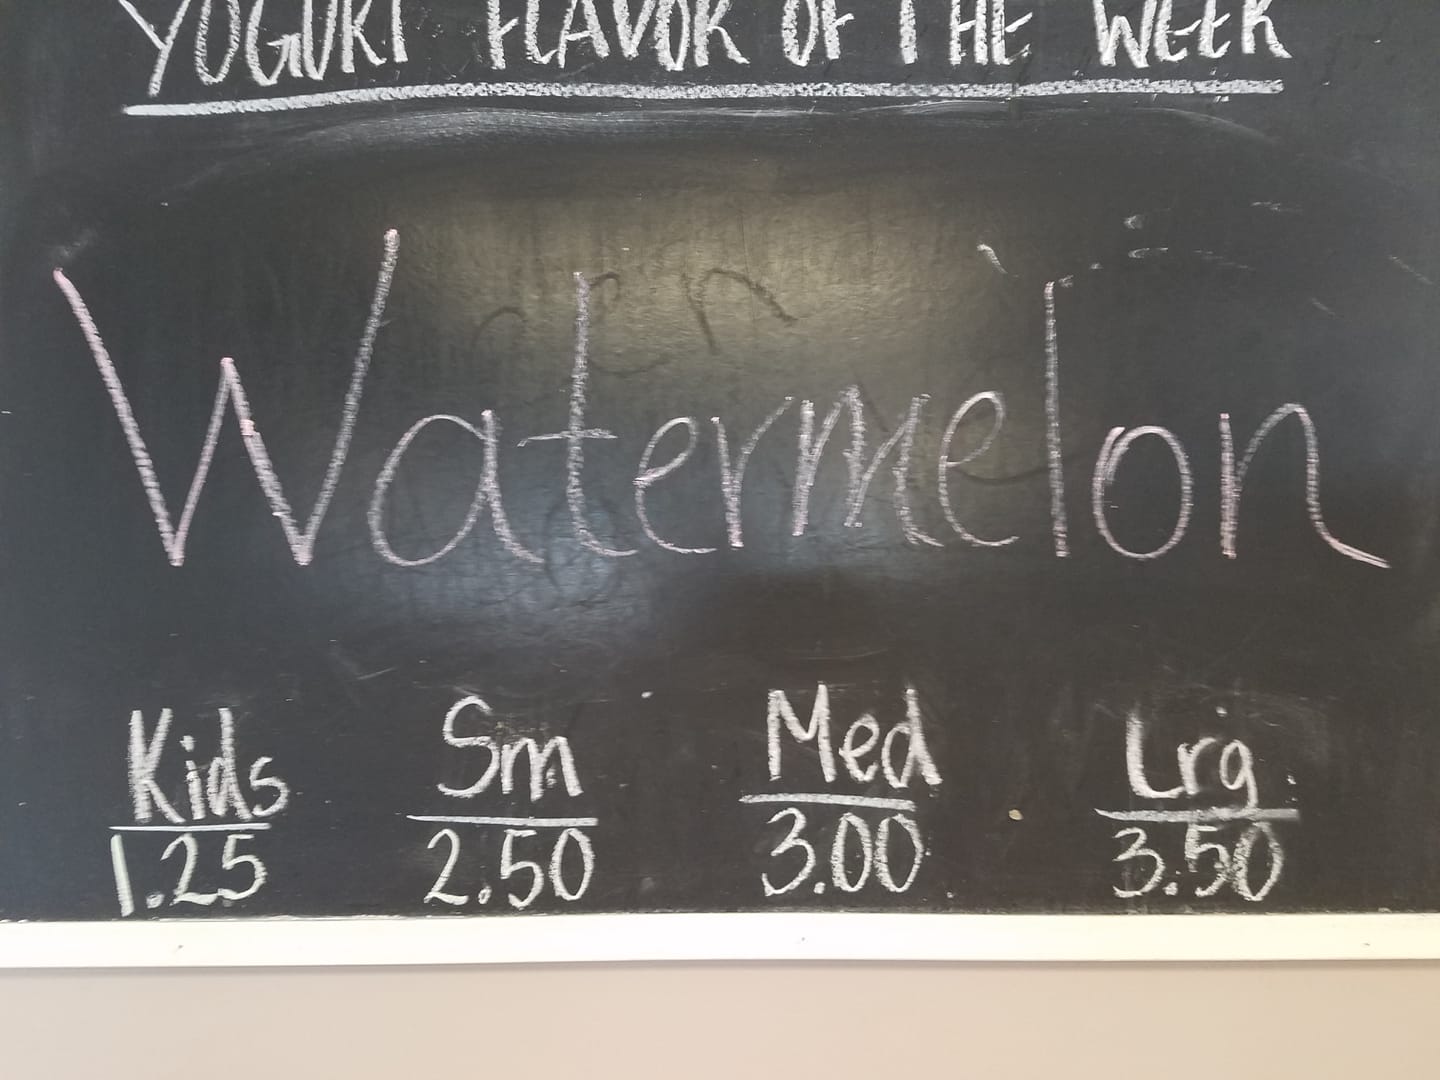 YOGURT FLAVOR OF THE WEEK
Watermelon
Kids Sm Med Lrg
1.25 2.50 3.00 3.50